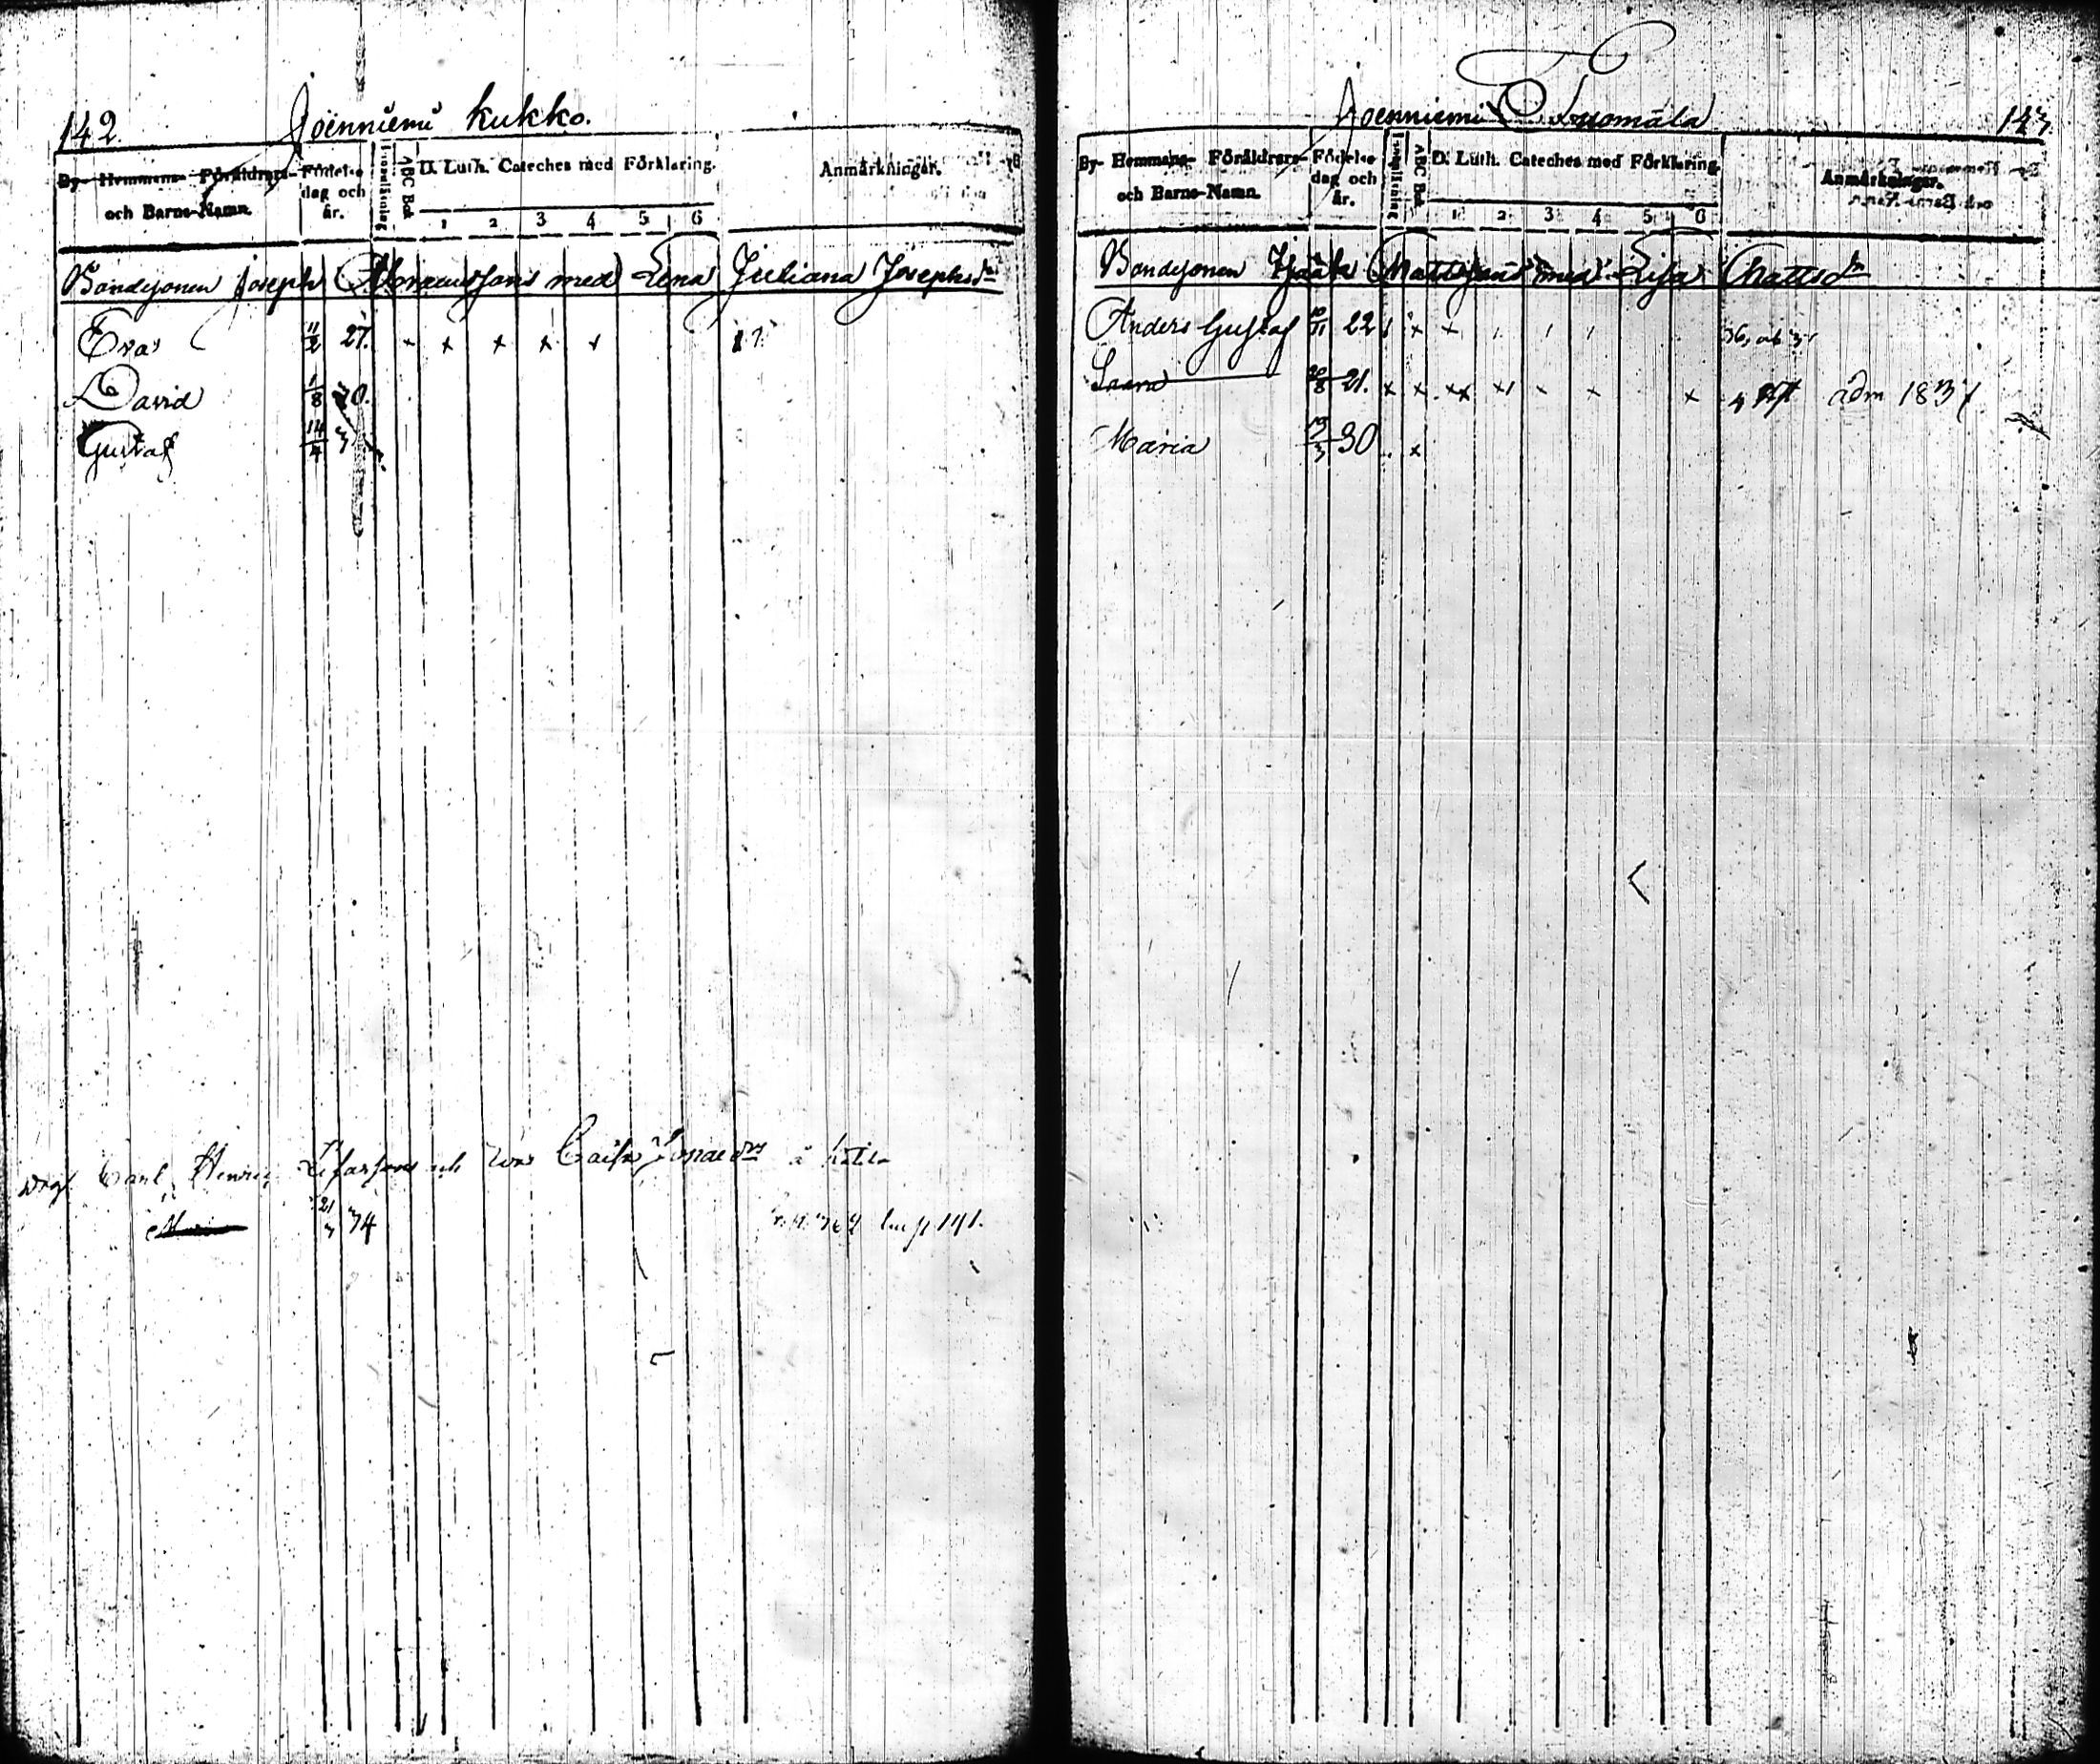 142. Joenniemi Kukko.
By- Hemmans- Föräldrars- och Barns-Namn. Födelse dag och år. Innanläsning ABC Bok D. Luth. Cateches med Förklaring. Anmärkningar.
1 2 3 4 5 6
Bondesonen Joseph Abramssons med Lena Juliana Josephsdr
Eva 11/2 27. x x x x x
David 1/8 30.
Gustaf 14/4
Carl Henric och Caisa à
21/3 34 p 141.
Joenniemi Tuomala 143.
By- Hemmans- Föräldrars- och Barns-Namn. Födelse dag och år. Innanläsning ABC Bok D. Luth. Cateches med Förklaring. Anmärkningar.
1 2 3 4 5 6
Bondesonen Isaak Mattssons med Lisa Mattsdr
Anders Gustaf 10/11 22
Saara 20/8 21. x x x x x x x adm 1837
Maria 19/3 30 x